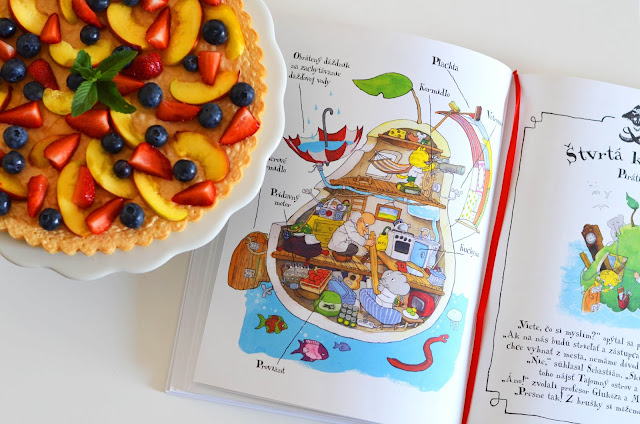 Obrátený dáždnik
na zachytávanie
dažďovej vody
Plachta
Kormidlo
Prídavný
motor
kuchyňa
Proviant
Štvrtá k
Pirát
„Viete, čo si myslím?“ opýtal sa p
„Ak na nás budú strieľať a zástupca
chce vyhnať z mesta, nemáme dôvod
„Nie,“ súhlasil Sebastián. „Sko
toho nájsť Tajomný ostrov a
„Áno!“ zvolali profesor Glukóza a M
„Presne tak! Z hrušky si môžeme